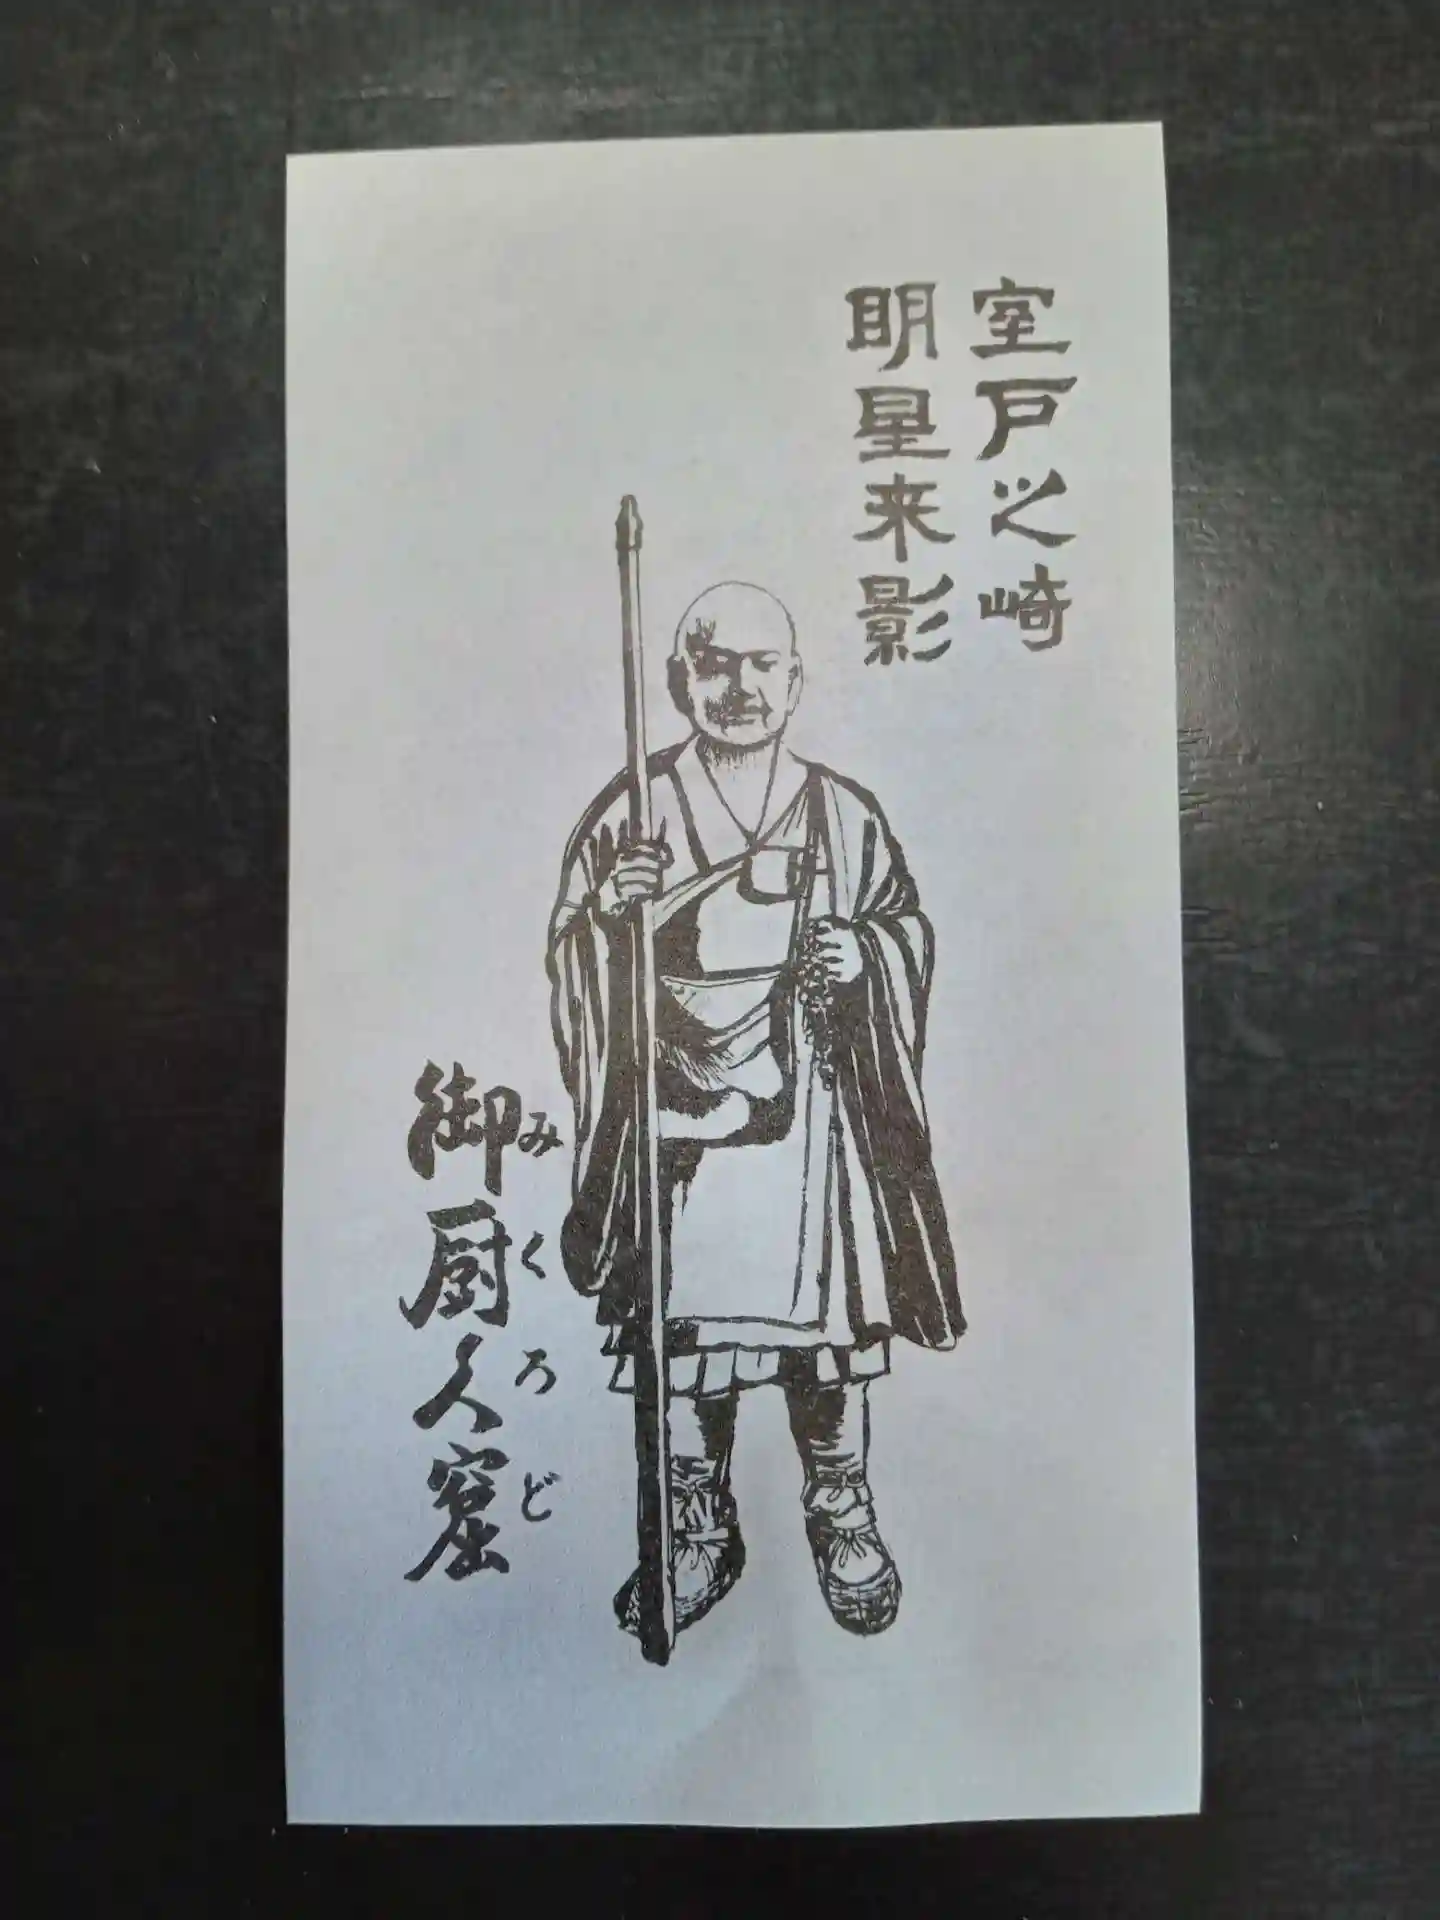 室戸之崎
明星来影
御厨人窟
みくろど